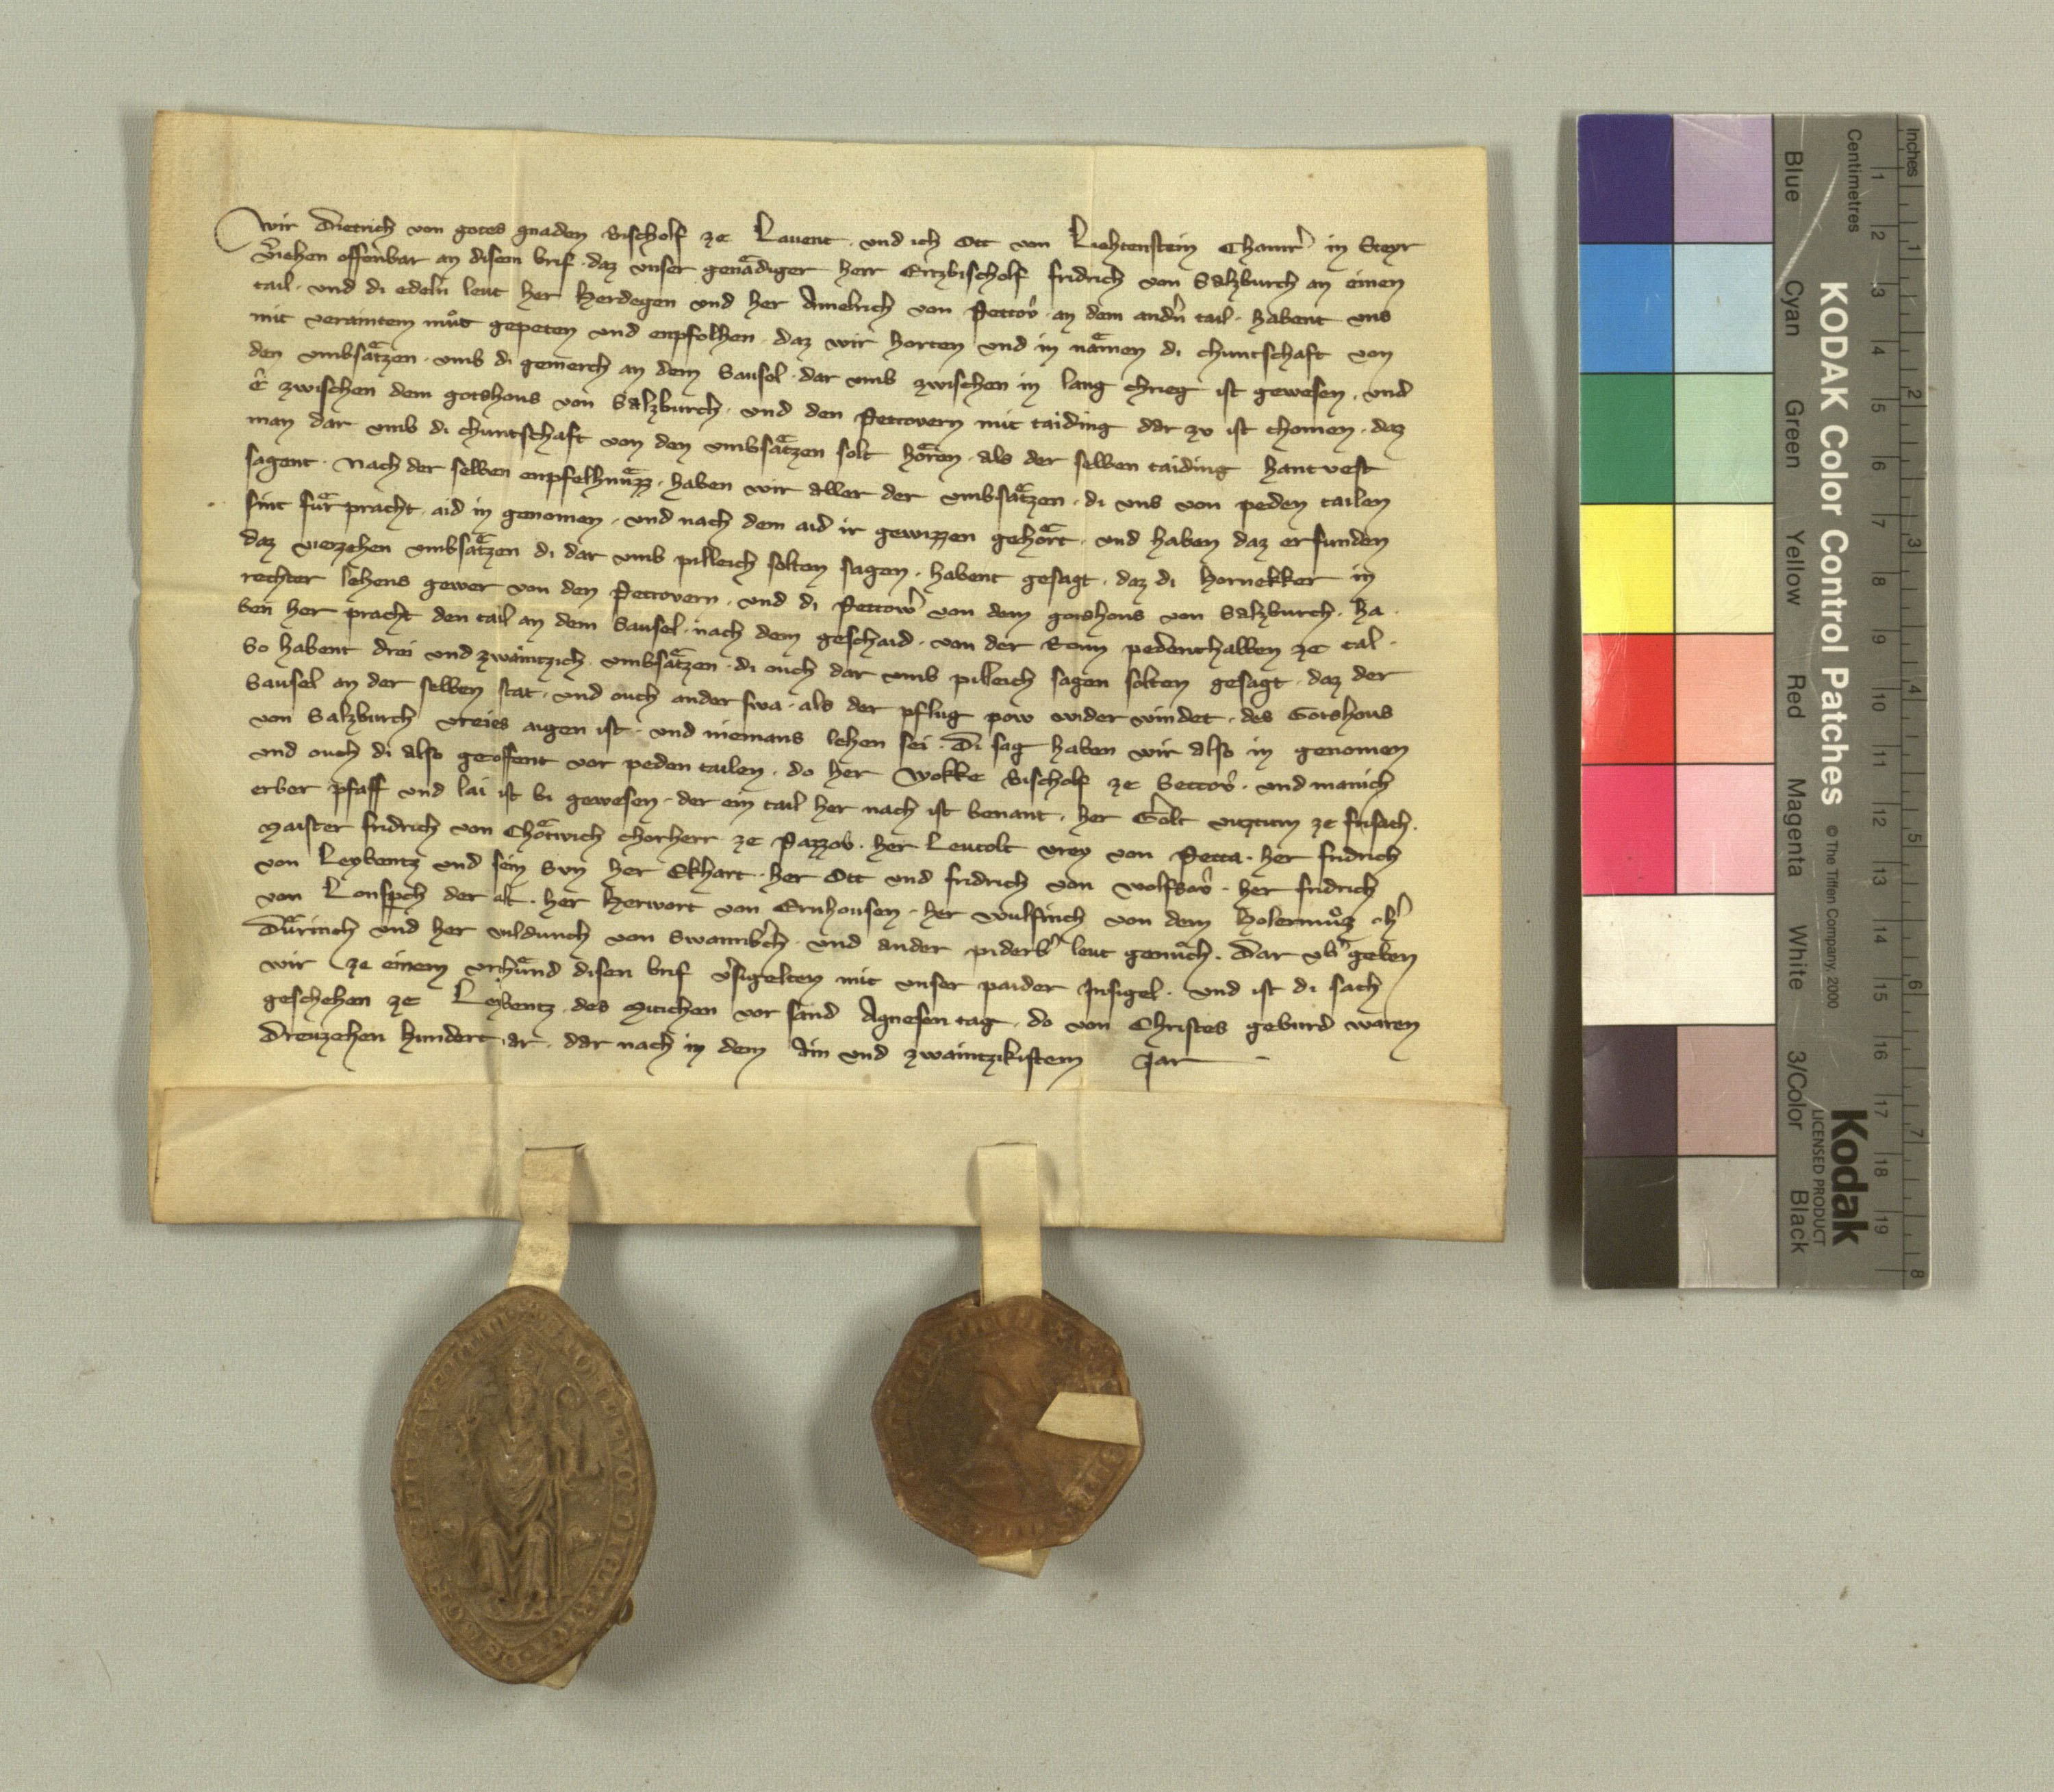 Wir Dietrich von gotes gnaden Bischolf ze Lauent · vnd ich Ott von Liehtenstein Chamr̾ in Steyr
v̾iehen offenbar an disem brif · daz vnser genaͤdiger herr Ertzbischolf fridrich von Salzburch an einen
tail · vnd di edeln̾ leut her Herdegen vnd her Amelrich von Pettov̾ · an dem andn̾ tail · habent vns
mit veraintem muͦt gepeten vnd enpfolhen · daz wir horten vnd in naͤmen di chuntschaft von
den vmbsaͤtzen · vmb di gemerch an dem Sausel · dar vmb zwischen in lang chrieg ist gewesen · vnd
ê zwischen dem gotshous von Salzburch · vnd den Pettovern mit taiding dar zv ist chomen · daz
man dar vmb di chuntschaft von den vmbsaͤtzen solt hoͤren · als der selben taiding hantvest
sagent · Nach der selben enpfelhnuͤzz · haben wir aller der vmbsaͤtzen · di vns von peden tailen
sint fuͤr pracht · aid in genomen · vnd nach dem aid ir gewizzen gehoͤrt · vnd haben daz erfunden
daz vierzehen vmbsaͤtzen di dar vmb pilleich solten sagen · habent gesagt · daz di Hornekker in
rechter lehens gewer von den Pettovern · vnd di Pettow̾ von dem gotshous von Salzburch · ha ·
ben her pracht den tail an dem Sausel · nach dem geschaid · von der Rönn pedenthalben ze tal ·
So habent drei vnd zwaintzich vmbsaͤtzen · di ouch dar vmb pilleich sagen solten gesagt · daz der
Sausel an der selben stat · vnd ouch anderswa · als der pflug pow wider windet · des Gotshous
von Salzburch vreies aigen ist · vnd niemans lehen sei · Di sag haben wir also in genomen
vnd ouch di also geoffent vor peden tailen · do her Wokke Bischolf ze Seccov̾ · vnd manich
erber pfaff vnd lai ist bi gewesen · der ein tail her nach ist benant · her Golt viztum ze frisach ·
Maister fridrich von Choͤtwich chorherr ze Pazzov · her Leutolt vrey von Pecca · her fridrich
von Leybentz vnd sein Svn her Ekhart · her Ott vnd fridrich von Wolfsov̾ · her fridrich
von Lonspch der alt · her Herwort von Ernhousen · her Wulfinch von dem Holermuͦz · h̾
Duͤrinch vnd her vildunch von Swannb̾ch · vnd ander piderb̾ leut genuͤch · Dar vb̾ geben
wir ze einem vrchuͤnd disen brif v̾sigelten mit vnser paider Insigel · vnd ist di sach
geschehen ze Leybentz · des Mitichen vor sand Agnesen tag · do von Christes geburd waren
Dreuzehen hundert iar · dar nach in dem Ain vnd zwaintzkistem Jar
KODAK Color Control Patches
© The Tiffen Company, 2000
Kodak
LICENSED PRODUCT
Inches
Centimetres
Blue Cyan Green Yellow Red Magenta White 3/Color Black
1 2 3 4 5 6 7 8 9 10 11 12 13 14 15 16 17 18 19
1 2 3 4 5 6 7 8